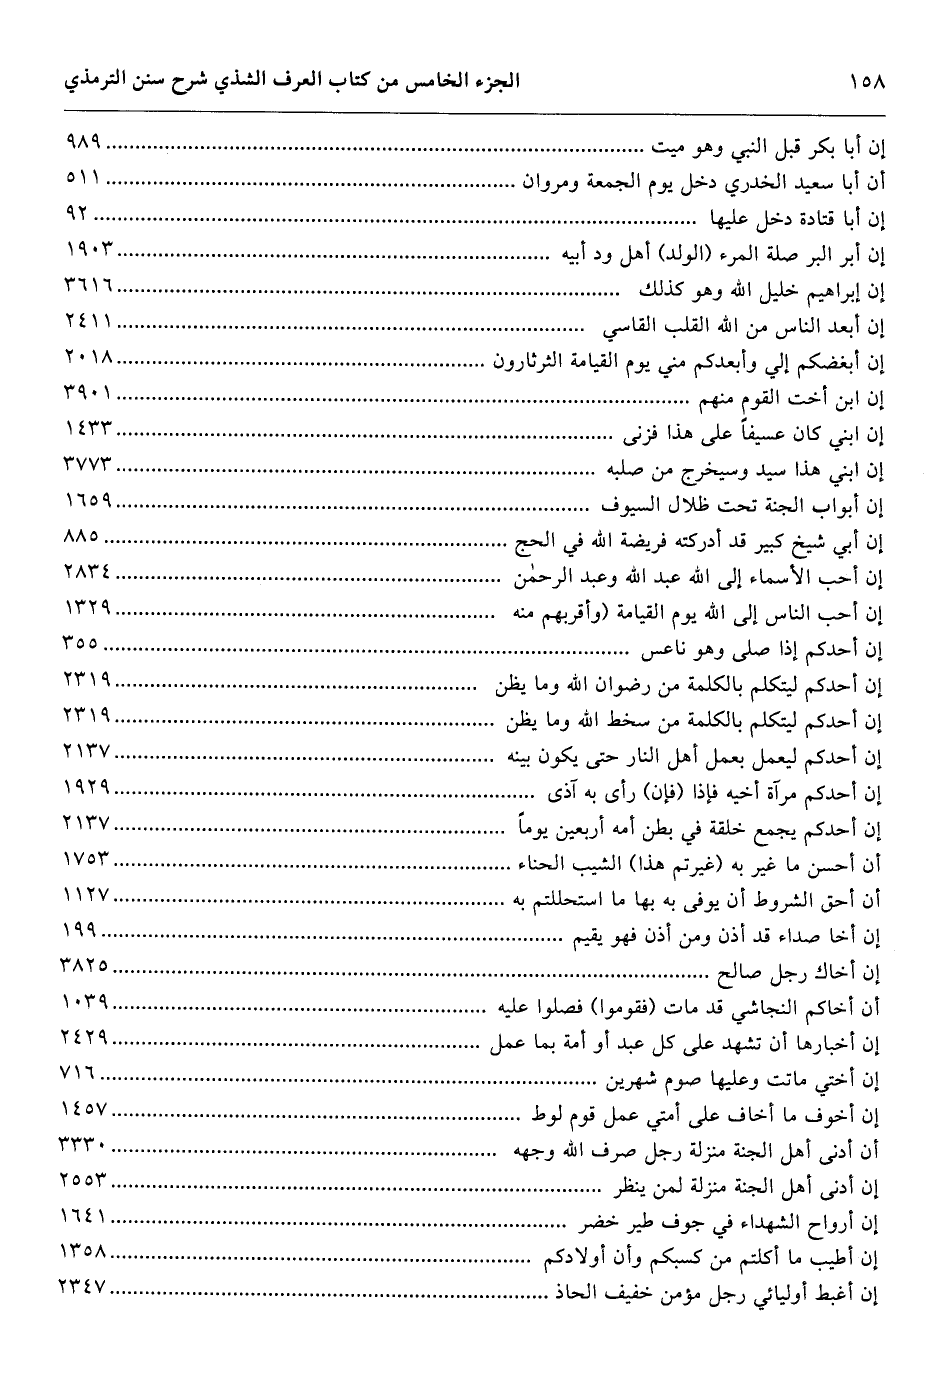 ١٥٨ الجزء الخامس من كتاب العرف الشذي شرح سنن الترمذي
إن أبا بكر قبل النبي وهو ميت ........ ٩٨٩
أن أبا سعيد الخدري دخل يوم الجمعة ومروان ........ ٥١١
إن أبا قتادة دخل عليها ........ ٩٢
إن أبر البر صلة المرء (الولد) أهل ود أبيه ........ ١٩٠٣
إن إبراهيم خليل الله وهو كذلك ........ ٣٦١٦
إن أبعد الناس من الله القلب القاسي ........ ٢٤١١
إن أبغضكم إلي وأبعدكم مني يوم القيامة الثرثارون ........ ٢٠١٨
إن ابن أخت القوم منهم ........ ٣٩٠١
إن ابني كان عسيفاً على هذا فزنى ........ ١٤٣٣
إن ابني هذا سيد وسيخرج من صلبه ........ ٣٧٧٣
إن أبواب الجنة تحت ظلال السيوف ........ ١٦٥٩
إن أبي شيخ كبير قد أدركته فريضة الله في الحج ........ ٨٨٥
إن أحب الأسماء إلى الله عبد الله وعبد الرحمٰن ........ ٢٨٣٤
إن أحب الناس إلى الله يوم القيامة (وأقربهم منه ........ ١٣٢٩
إن أحدكم إذا صلى وهو ناعس ........ ٣٥٥
إن أحدكم ليتكلم بالكلمة من رضوان الله وما يظن ........ ٢٣١٩
إن أحدكم ليتكلم بالكلمة من سخط الله وما يظن ........ ٢٣١٩
إن أحدكم ليعمل بعمل أهل النار حتى يكون بينه ........ ٢١٣٧
إن أحدكم مرآة أخيه فإذا (فإن) رأى به آذى ........ ١٩٢٩
إن أحدكم يجمع خلقة في بطن أمه أربعين يوماً ........ ٢١٣٧
أن أحسن ما غير به (غيرتم هذا) الشيب الحناء ........ ١٧٥٣
أن أحق الشروط أن يوفى به بها ما استحللتم به ........ ١١٢٧
إن أخا صداء قد أذن ومن أذن فهو يقيم ........ ١٩٩
إن أخاك رجل صالح ........ ٣٨٢٥
أن أخاكم النجاشي قد مات (فقوموا) فصلوا عليه ........ ١٠٣٩
إن أخبارها أن تشهد على كل عبد أو أمة بما عمل ........ ٢٤٢٩
إن أختي ماتت وعليها صوم شهرين ........ ٧١٦
إن أخوف ما أخاف على أمتي عمل قوم لوط ........ ١٤٥٧
أن أدنى أهل الجنة منزلة رجل صرف الله وجهه ........ ٣٣٣٠
إن أدنى أهل الجنة منزلة لمن ينظر ........ ٢٥٥٣
إن أرواح الشهداء في جوف طير خضر ........ ١٦٤١
إن أطيب ما أكلتم من كسبكم وأن أولادكم ........ ١٣٥٨
إن أغبط أوليائي رجل مؤمن خفيف الحاذ ........ ٢٣٤٧